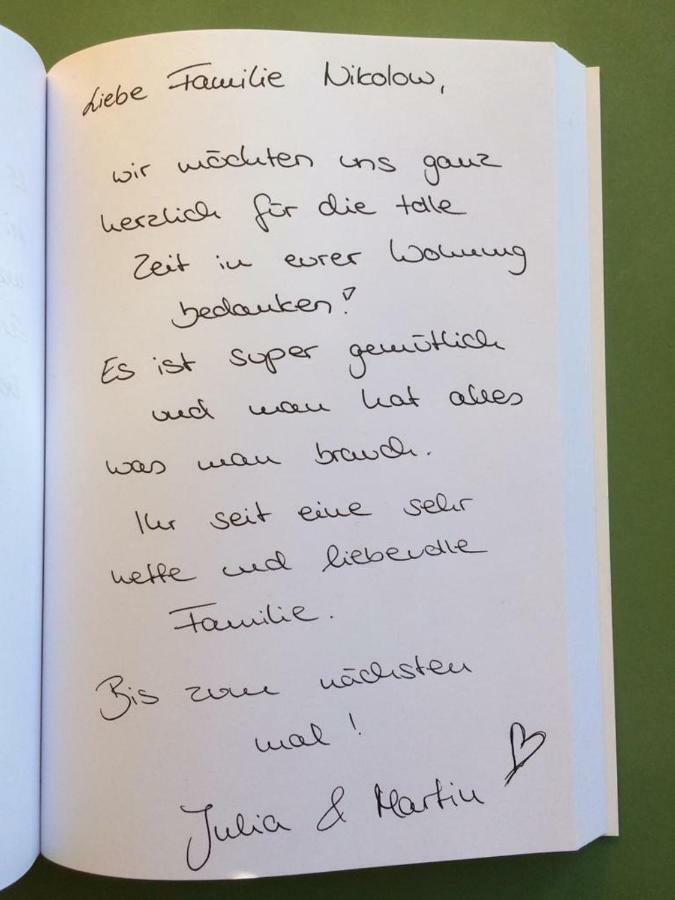 Liebe Familie Nikolow,
wir möchten uns ganz
herzlich für die tolle
Zeit in eurer Wohnung
bedanken!
Es ist super gemütlich
und man hat alles
was man brauch.
Ihr seit eine sehr
nette und liebevolle
Familie.
Bis zum nächsten
mal!
Julia & Martin